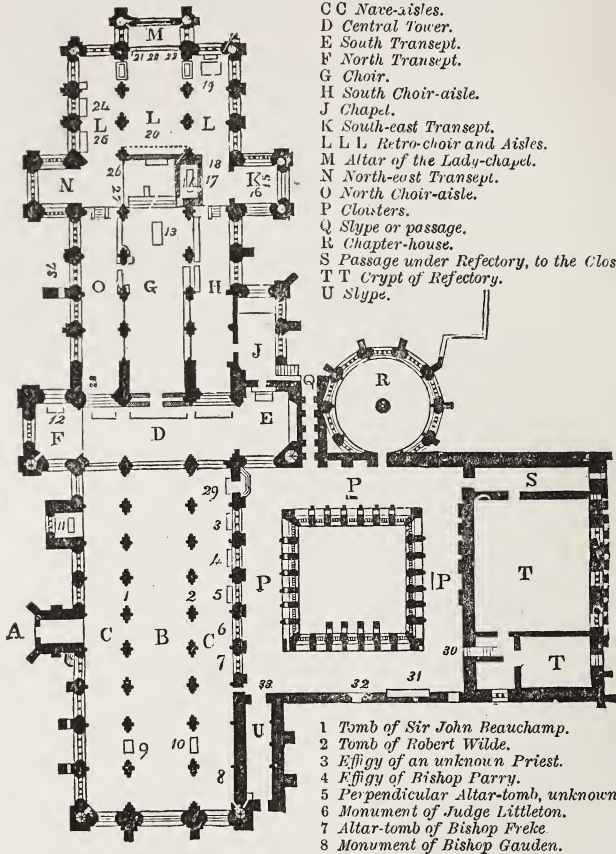 C C Nave-aisles.
D Central Tower.
E South Transept.
F North Transept.
G Choir.
H South Choir-aisle.
J Chapel.
K South-east Transept.
L L L Retro-choir and Aisles.
M Altar of the Lady-chapel.
N North-east Transept.
O North Choir-aisle.
P Cloisters.
Q Slype or passage.
R Chapter-house.
S Passage under Refectory, to the Clos
T T Crypt of Refectory.
U Slype.
M
21 22 23
19
24
L L L
25
20
26
18
N
27
17
K
16
15
13
O G H
J
28
Q
R
12
F
D
E
29
P
S
11
3
4
P
P
T
1
2
5
A
C B C
6
7
30
T
33
32
31
U
9
10
8
1 Tomb of Sir John Beauchamp.
2 Tomb of Robert Wilde.
3 Effigy of an unknown Priest.
4 Effigy of Bishop Parry.
5 Perpendicular Altar-tomb, unknown
6 Monument of Judge Littleton.
7 Altar-tomb of Bishop Freke.
8 Monument of Bishop Gauden.